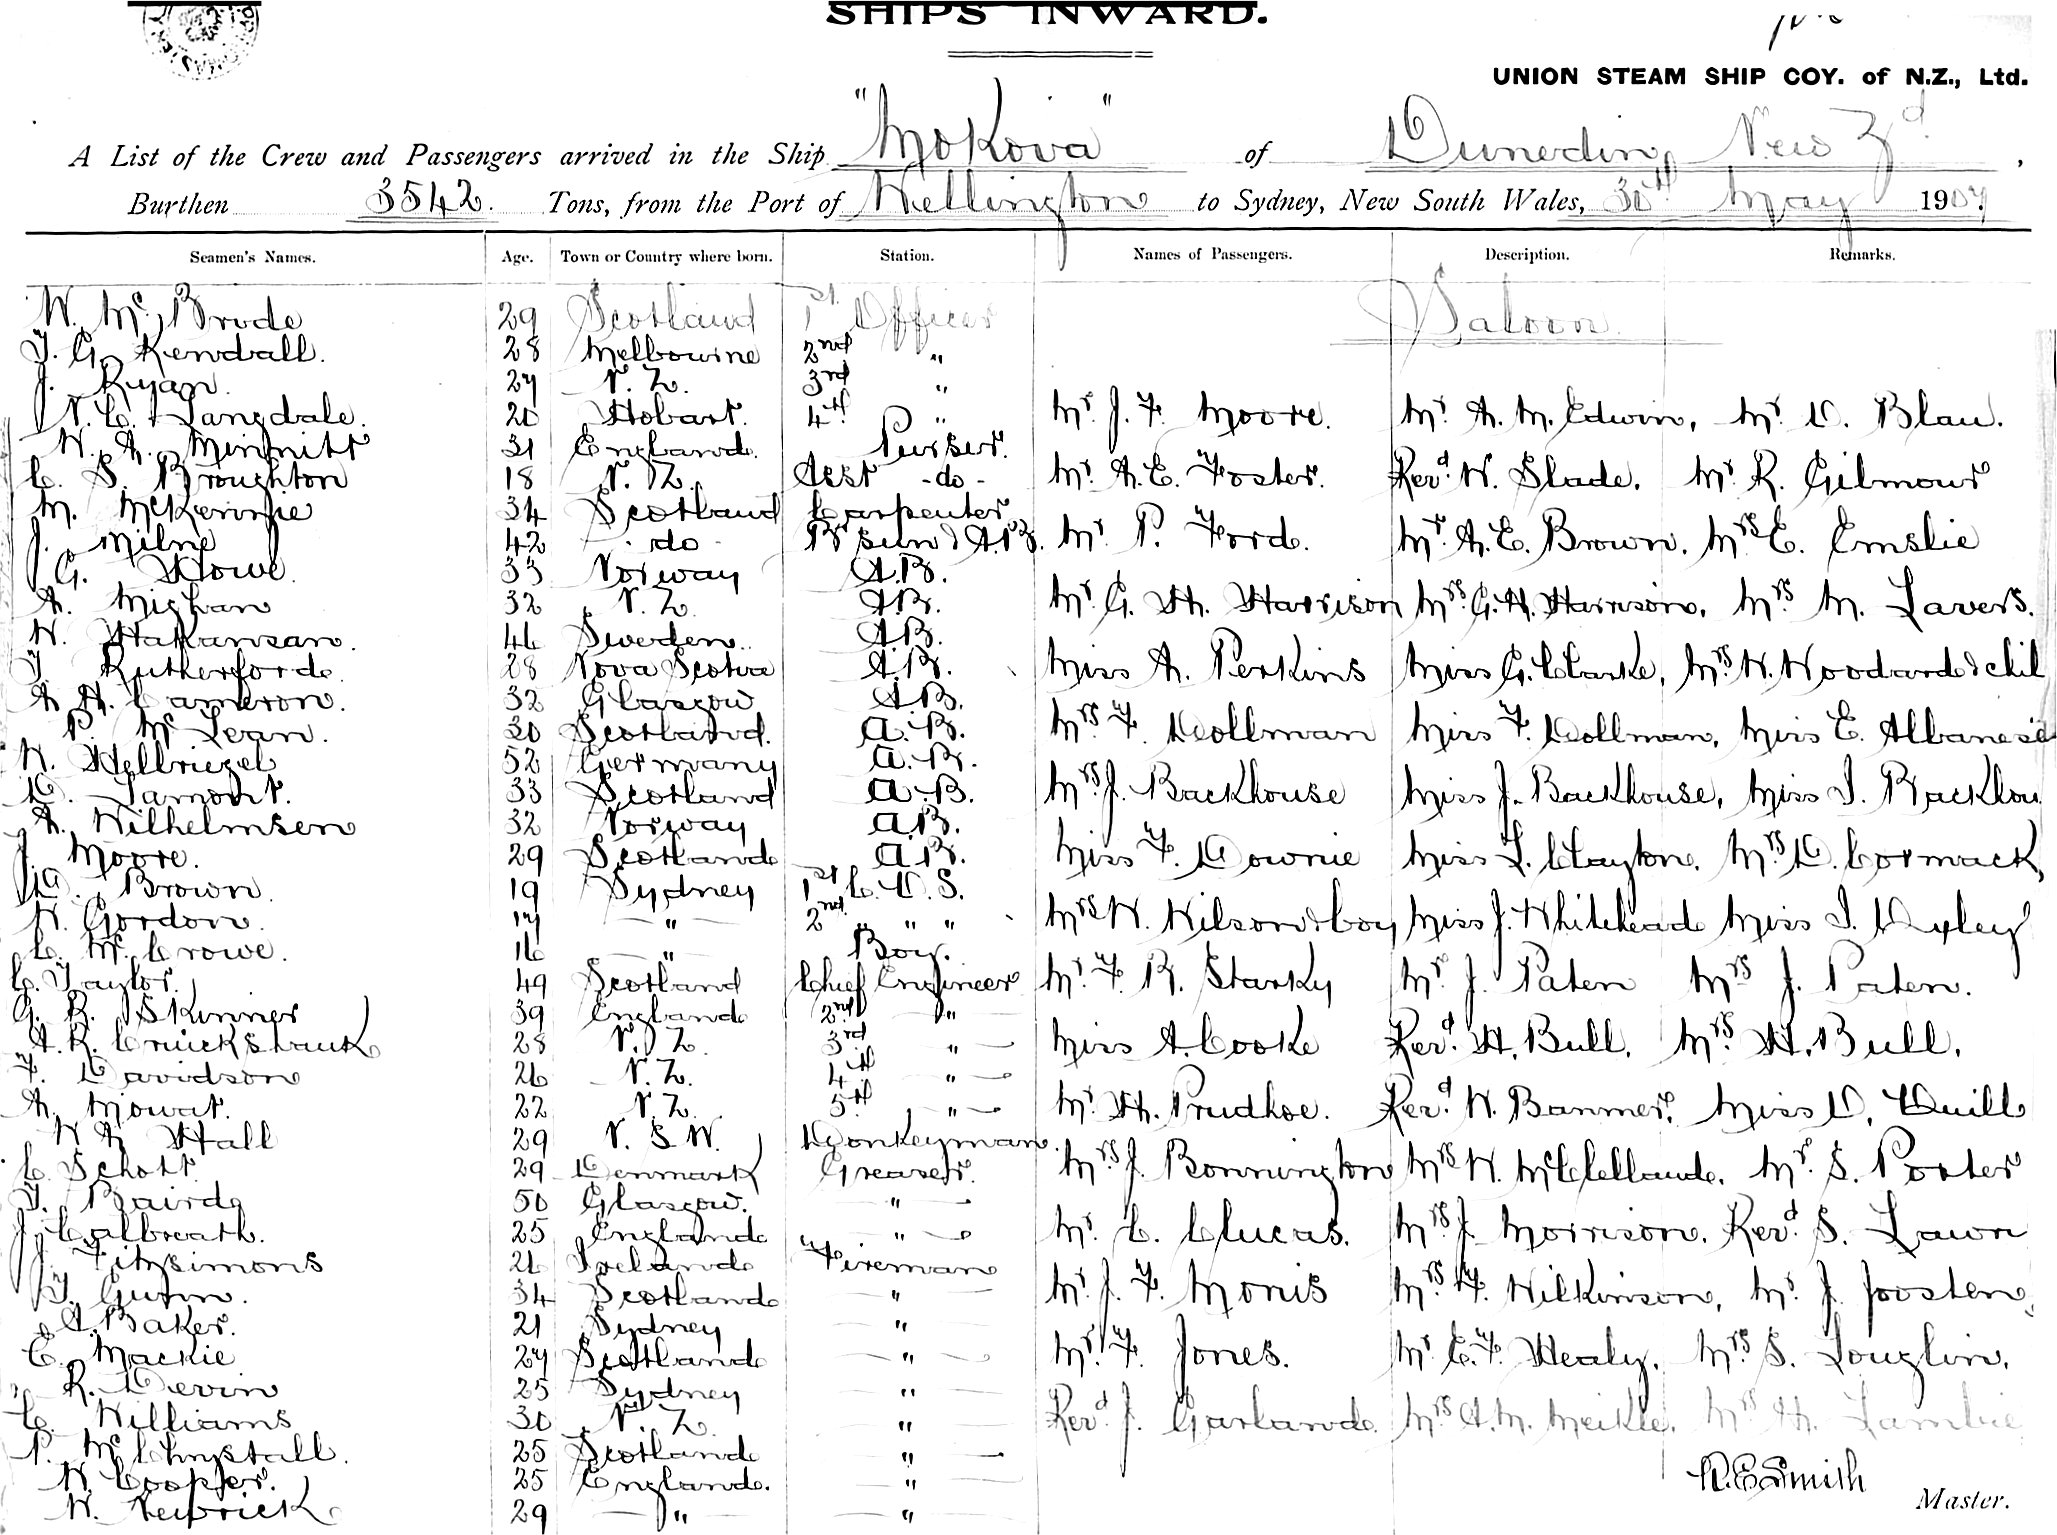 SHIPS INWARD.
UNION STEAM SHIP COY. of N.Z., Ltd.
A List of the Crew and Passengers arrived in the Ship "Mokoia" of Dunedin, New Zd,
Burthen 3542. Tons, from the Port of Wellington to Sydney, New South Wales, 30th May 1907
Seamen's Names. Age. Town or Country where born. Station. Names of Passengers. Description. Remarks.
Saloon
W. Mc Brude 29 Scotland 1st Officer
T. G. Kendall. 28 Melbourne 2nd "
J. Ryan. 27 N. Z. 3rd "
N. C. Langdale. 20 Hobart. 4th " Mr. J. F. Moore. Mr. A. M. Edwin, Mr. D. Blau.
W. A. Minnitt 31 England. Purser.
C. S. Broughton 18 N. Z. Asst -do- Mr. A. E. Foster. Revd. W. Slade. Mr. R. Gilmour
M. McKenzie 34 Scotland Carpenter
J. Milne 42 - do - B'sun & A.B. Mr. P. Ford. Mr. A. E. Brown. Mrs E. Emslie
G. Howe. 33 Norway A.B.
A. Mighan 32 N. Z. A.B. Mr. G. H. Harrison Mrs. G. H. Harrison, Mrs. M. Lavers.
W. Hakansan. 46 Sweden. A.B.
T. Rutherford. 28 Nova Scotia A.B. Miss A. Perkins Miss G. Clarke, Mrs. W. Woodard & chil
A. H. Cameron. 32 Glasgow A.B.
P. Mc Lean. 30 Scotland. A.B. Mrs. F. Dollman Miss F. Dollman, Miss E. Albanese
W. Hellriegel 52 Germany A.B.
D. Lamont. 33 Scotland A.B. Mrs. J. Backhouse Miss J. Backhouse, Miss I. Backhou
A. Wilhelmsen 32 Norway A.B.
J. Moore. 29 Scotland A.B. Miss F. Downie Miss L. Clayton. Mrs. D. Cormack,
D. Brown. 19 Sydney 1st C. D. S.
W. Gordon. 17 " 2nd " " " Mrs W. Wilson & boy Miss J. Whitehead Miss I. Dyley
C. Mc Crowe. 16 " Boy.
C. Taylor. 49 Scotland Chief Engineer Mr. F. R. Starky Mr. J. Paten Mrs J. Paten.
G. B. Skinner 39 England 2nd "
A. R. Cruickshank 28 N. Z. 3rd " Miss A. Cooke Revd. H. Bull. Mrs. H. Bull.
F. Davidson 26 N. Z. 4th "
A. Mowat. 22 N. Z. 5th " Mr. H. Prudhoe. Revd. W. Banmer. Miss D. Quill
W. A. Hall 29 N. S. W. Donkeyman
C. Schott. 29 Denmark Greaser. Mrs. J. Bonnington Mrs W. McClelland. Mr. S. Porter
T. Baird 50 Glasgow. "
J. Calbreath. 25 England " Mr. C. Clucas. Mrs. J. Morrison. Revd. S. Lawn
J. Fitzsimons 26 Ireland Fireman
T. Gunn. 34 Scotland " Mr. J. F. Monis Mrs. F. Wilkinson, Mr. J. Joosten,
A. Baker. 21 Sydney "
E. Mackie 27 Scotland " Mr. F. Jones. Mr. E. F. Healy. Mrs S. Louglin.
R. Devin 25 Sydney "
C. Williams 30 N. Z. " Revd. J. Garland. Mrs A. M. Meikle. Mrs. H. Lambie
P. Mc Chrystall. 25 Scotland "
W. Cooper. 25 England. "
W. Newrick 29 " "
R. E. Smith
Master.